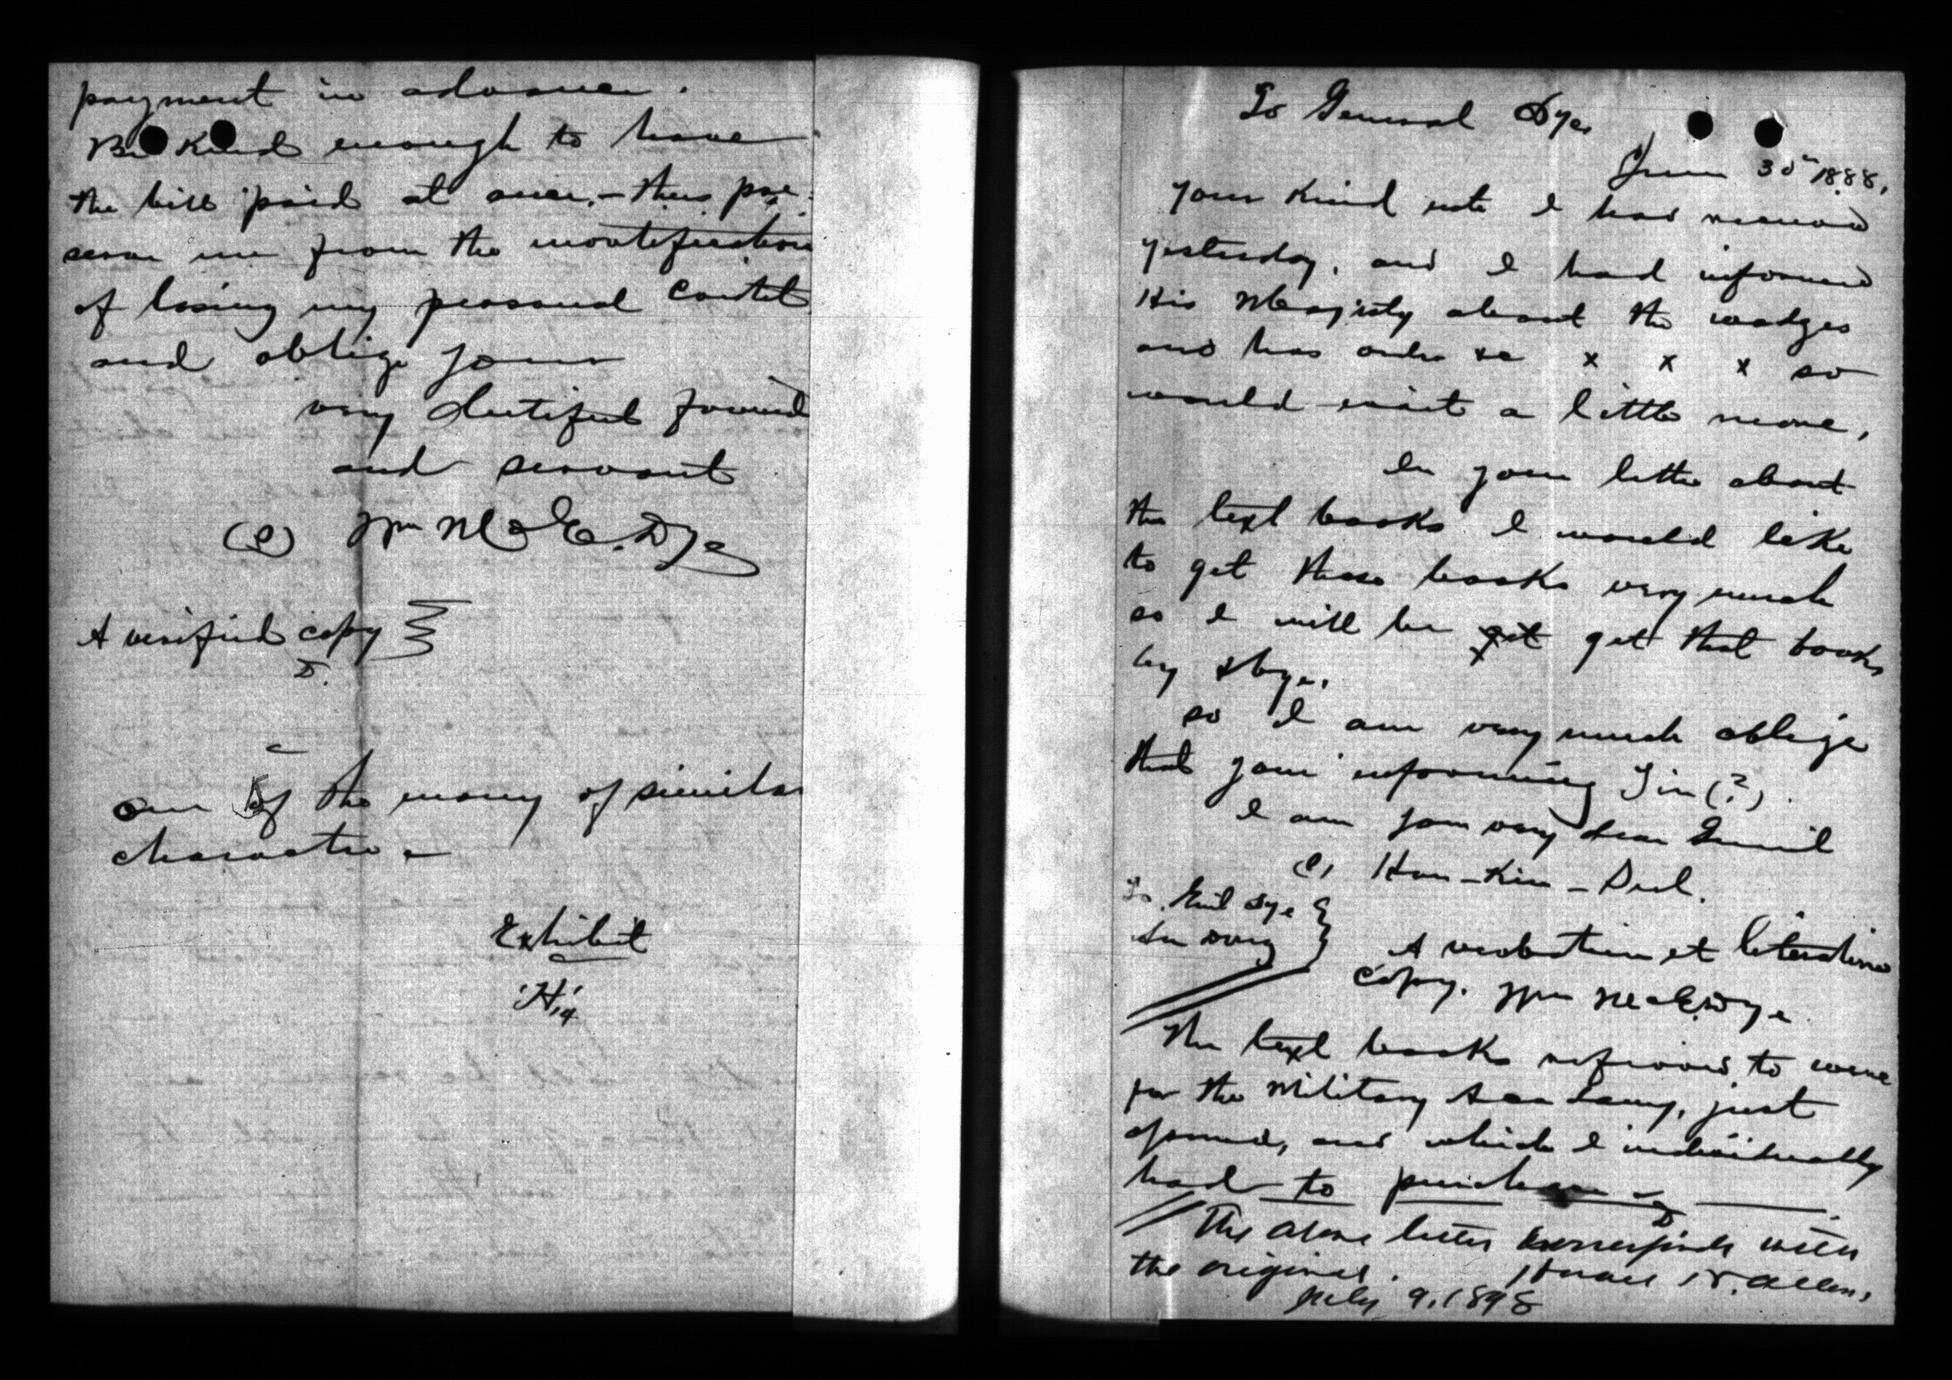 payment in advance.
Be kind enough to have
the bill paid at once, – thus pre-
serve me from the mortification
of losing my personal credit
and oblige your
very dutiful friend
and servant
(S) Wm McE. Dye
A verified copy
D.
one of the many of similar
character.
Exhibit
"H"
To General Dye
June 30th 1888.
your kind note I has received
yesterday, and I had informed
His Majesty about the wadges
and has order se x x x so
would wait a little more,
In your letter about
the text books I would like
to get those books very much
so I will be get get that books
by &bye.
so I am very much oblige
that your informing Tin (?).
I am your very dear
(S) Han-Kin-Dul.
To. Genl Dye
A verbatim et literatim
copy. Wm McE. Dye
The text books referred to were
for the Military Academy, just
opened, and which I individually
had to purchase
D
The above letter corresponds with
the original. Horace N. Allen,
July 9, 1898